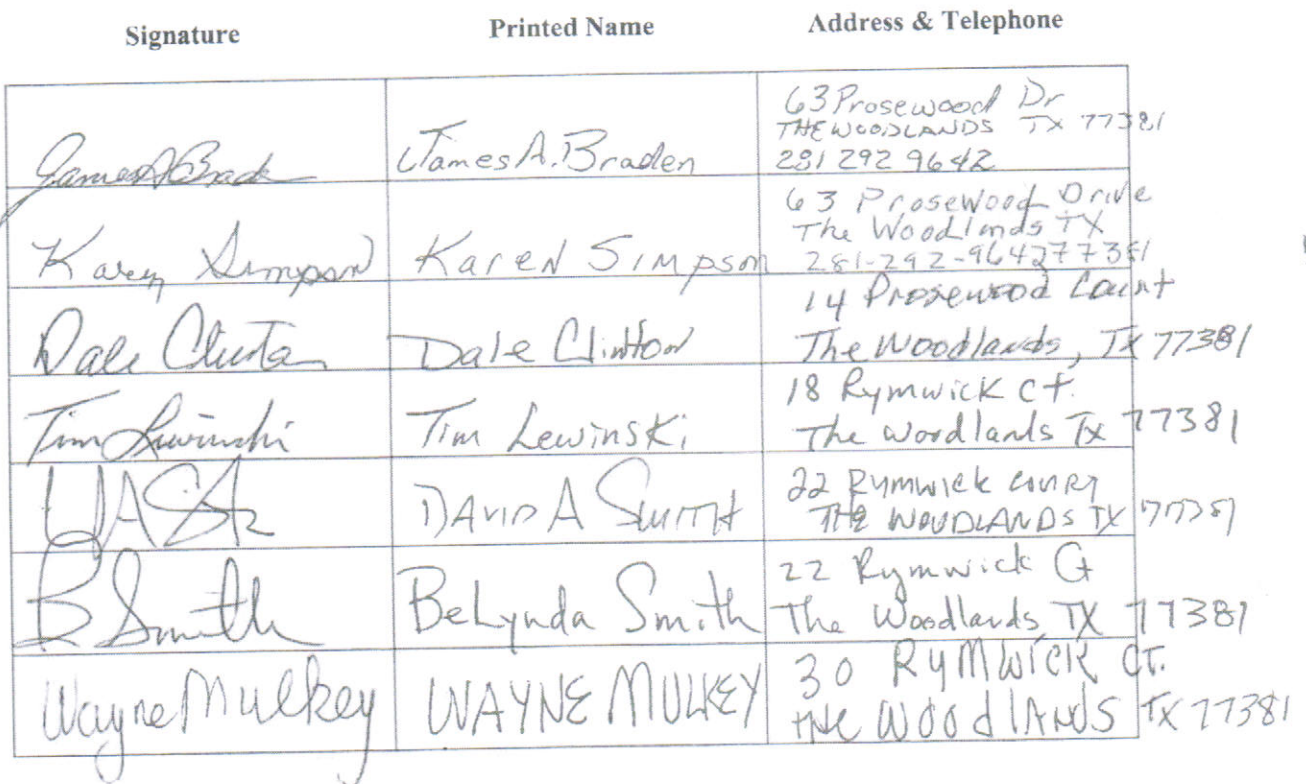 Signature Printed Name Address & Telephone
James A Brade James A. Braden 63 Prosewood Dr
THE WOODLANDS TX 77381
281 292 9642
Karen Simpson Karen Simpson 63 Prosewood Drive
The Woodlands TX
281-292-9642 77381
Dale Clinton Dale Clinton 14 Prosewood Court
The Woodlands, TX 77381
Tim Lewinski Tim Lewinski 18 Rymwick Ct.
The Woodlands Tx 77381
DAVID A SMITH 22 Rymwick COURT
THE WOODLANDS TX 77381
B Smith BeLynda Smith 22 Rymwick Ct
The Woodlands TX 77381
Wayne Mulkey WAYNE MULKEY 30 RYMWICK CT.
THE WOODLANDS TX 77381